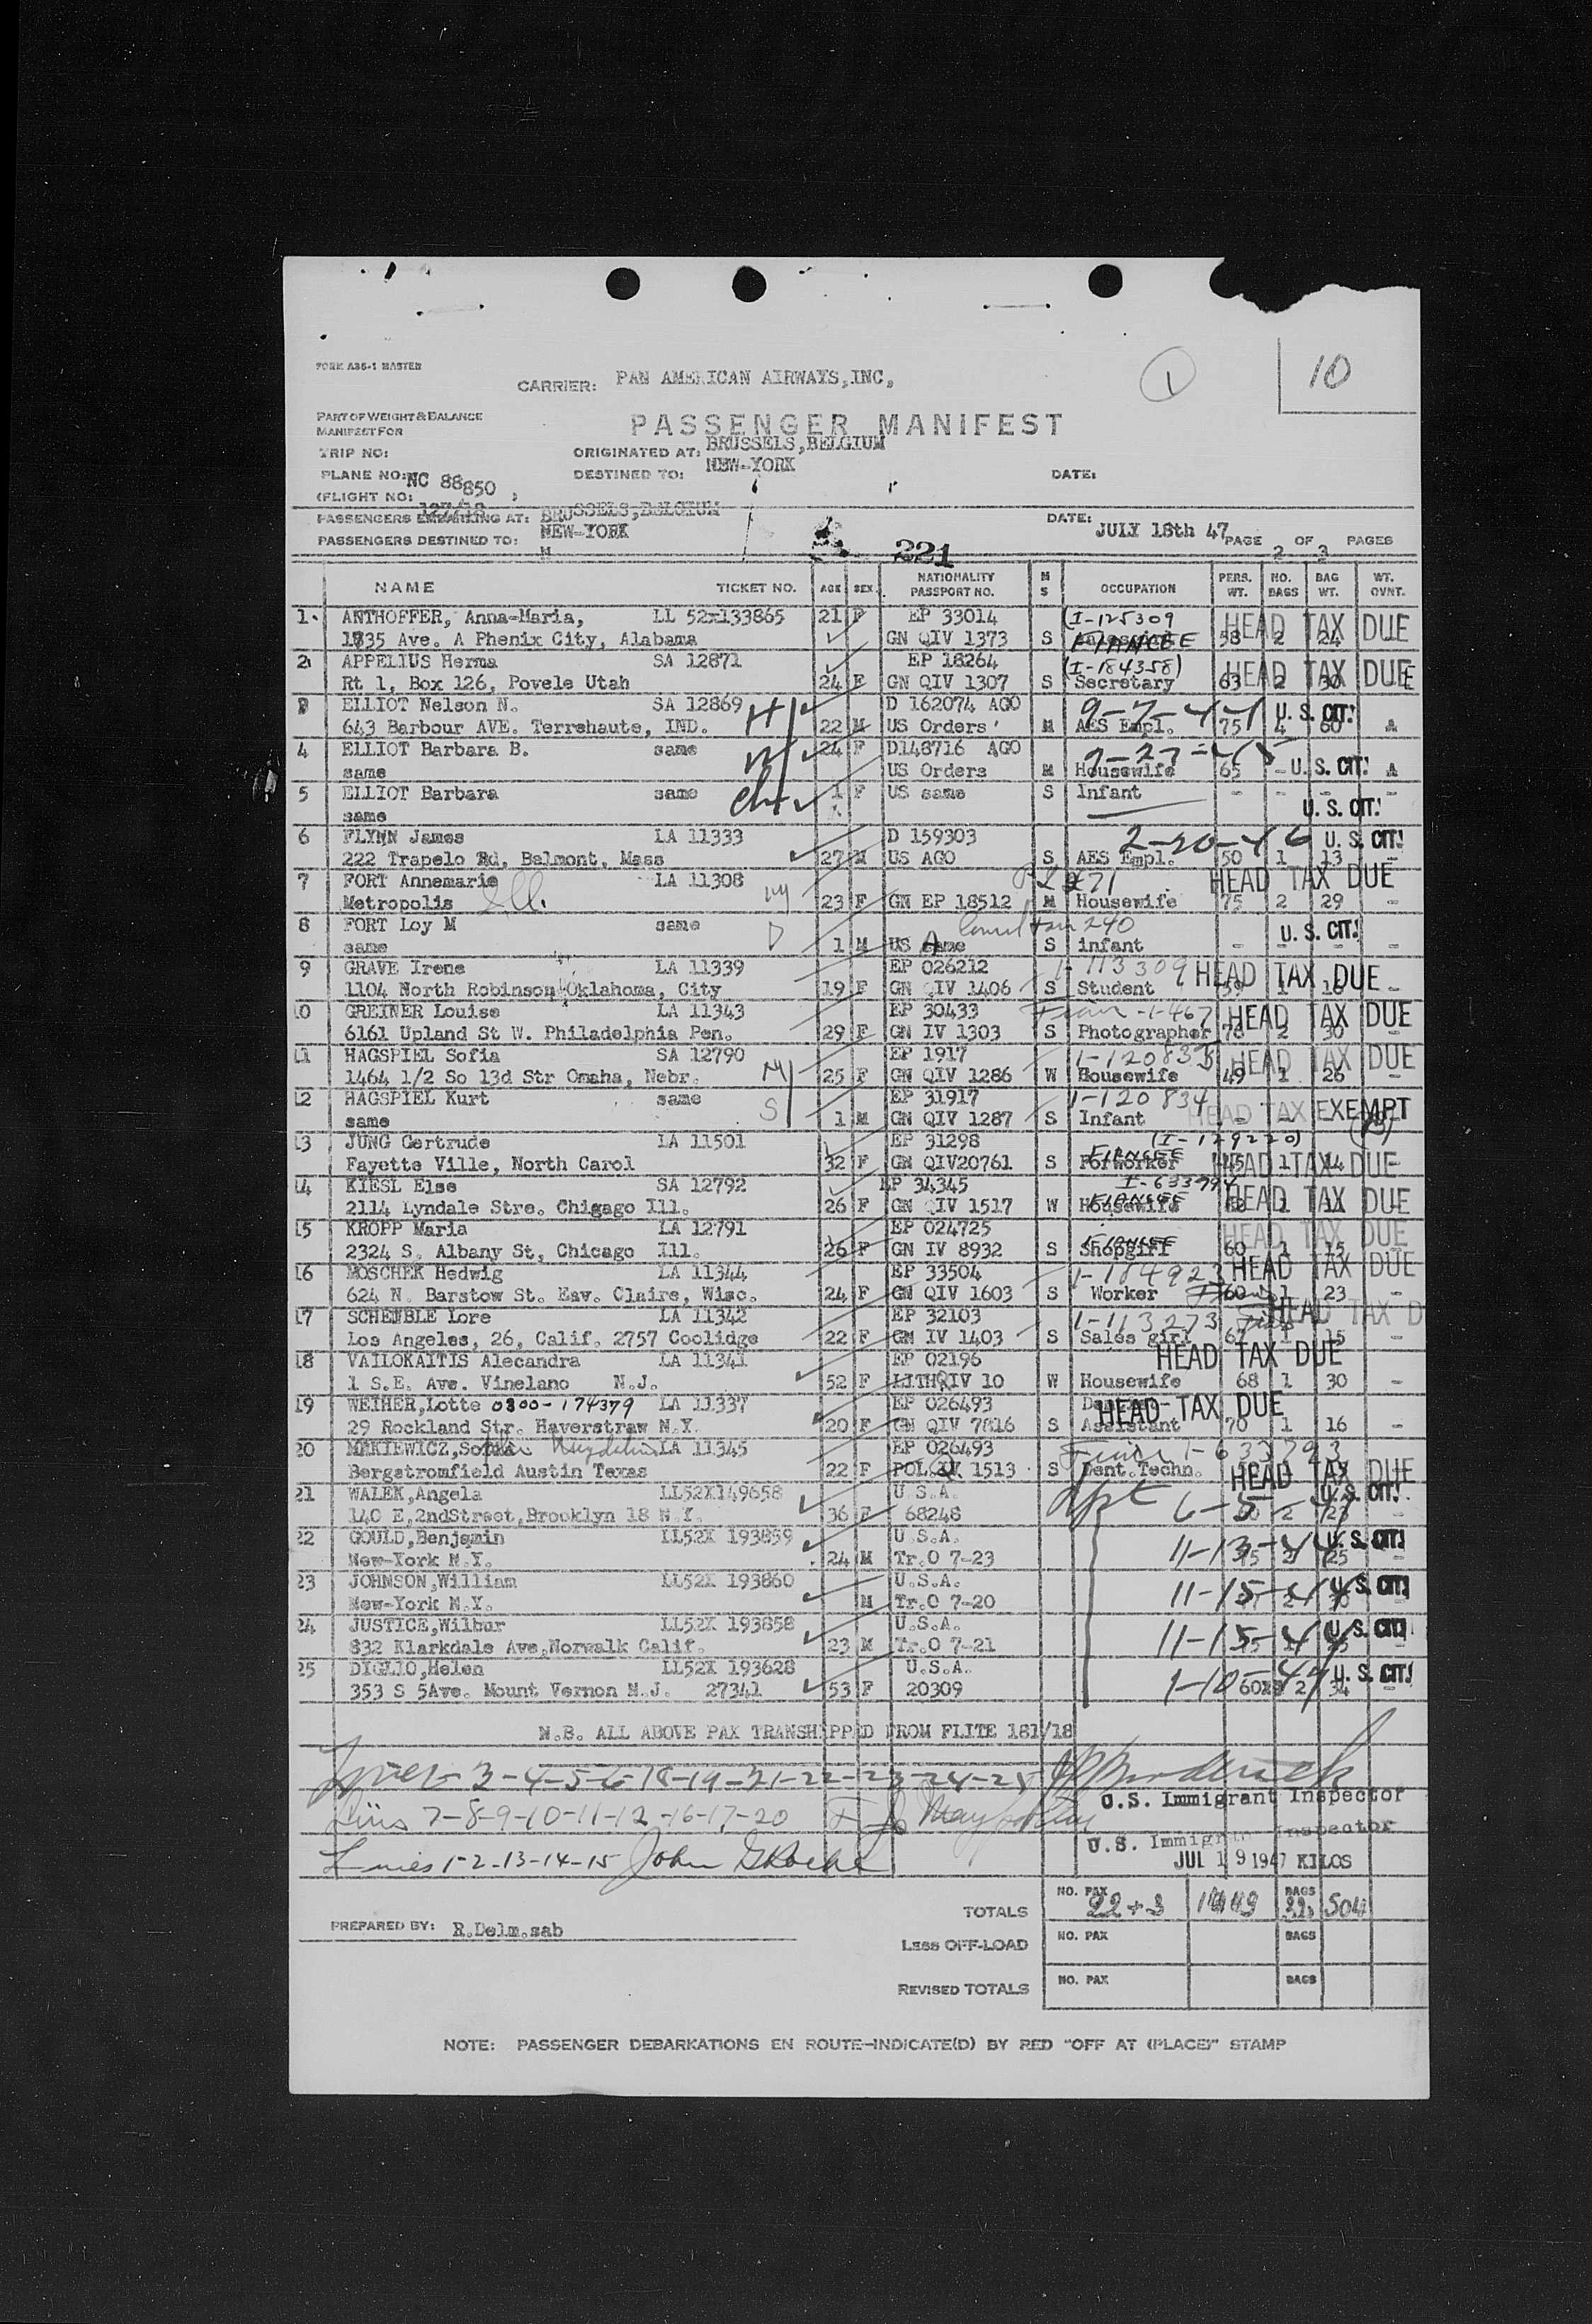 10
1
FORM A36-1 MASTER
CARRIER: PAN AMERICAN AIRWAYS,INC,
PART OF WEIGHT & BALANCE
MANIFEST FOR
PASSENGER MANIFEST
TRIP NO:
ORIGINATED AT: BRUSSELS,BELGIUM
PLANE NO: NC 88850
DESTINED TO: NEW-YORK
DATE:
(FLIGHT NO: 127/18 )
PASSENGERS EMBARKING AT: BRUSSELS,BELGIUM
DATE: JULY 18th 47
PASSENGERS DESTINED TO: NEW-YORK
PAGE 2 OF 3 PAGES
221
NAME TICKET NO. AGE SEX NATIONALITY PASSPORT NO. M S OCCUPATION PERS. WT. NO. BAGS BAG WT. WT. OVNT.
1. ANTHOFFER, Anna-Maria, LL 52x133865 21 F EP 33014 (I-125309 HEAD TAX DUE
1835 Ave. A Phenix City, Alabama GN QIV 1373 S FIANCEE 58 2 24
2 APPELIUS Herma SA 12871 EP 18264 (I-184358) HEAD TAX DUE
Rt 1, Box 126, Povele Utah 24 F GN QIV 1307 S Secretary 63 2 30
ELLIOT Nelson N. SA 12869 H D 162074 AGO 9-7-44 U. S. CIT.
643 Barbour AVE. Terrehaute, IND. 22 M US Orders M AES Empl. 75 4 60 A
4 ELLIOT Barbara B. same W 24 F D148716 AGO 9-27-45
same US Orders M Housewife 65 - U. S. CIT. A
5 ELLIOT Barbara same ch 1 F US same S Infant - - - -
same U. S. CIT.
6 FLYNN James LA 11333 D 159303 2-20-46 U. S. CIT.
222 Trapelo Rd, Belmont, Mass 27 M US AGO S AES Empl. 50 1 13 -
7 FORT Annemarie LA 11308 HEAD TAX DUE
Metropolis Ill. 23 F GN EP 18512 M Housewife 75 2 29 -
8 FORT Loy M same U. S. CIT.
same 1 M US same S infant - - - -
9 GRAVE Irene LA 11339 EP 026212 1-113309 HEAD TAX DUE
1104 North Robinson Oklahoma, City 19 F GN QIV 1406 S Student 59 1 16 -
10 GREINER Louise LA 11343 EP 30433 HEAD TAX DUE
6161 Upland St W. Philadelphia Pen. 29 F GN IV 1303 S Photographer 76 2 30
11 HAGSPIEL Sofia SA 12790 M EP 1917 1-120835 HEAD TAX DUE
1464 1/2 So 13d Str Omaha, Nebr. 25 F GN QIV 1286 W Housewife 49 1 26 -
12 HAGSPIEL Kurt same S EP 31917 1-120834 HEAD TAX EXEMPT
same 1 M GN QIV 1287 S Infant
13 JUNG Gertrude LA 11501 EP 31298 (I-129220)
Fayette Ville, North Carol 32 F GN QIV20761 S FIANCEE 45 1 14 HEAD TAX DUE
14 KIESL Else SA 12792 EP 34345 I-633794
2114 Lyndale Stre. Chigago Ill. 26 F GN QIV 1517 W Housewife FIANCEE HEAD TAX DUE
15 KROPP Maria LA 12791 EP 024725 HEAD TAX DUE
2324 S. Albany St, Chicago Ill. 26 F GN IV 8932 S Shopgirl FIANCEE 60 1 15
16 MOSCHEK Hedwig LA 11344 EP 33504 HEAD TAX DUE
624 N. Barstow St. Eav. Claire, Wisc. 24 F GN QIV 1603 S Worker 60 1 23 -
17 SCHEMBLE Lore LA 11342 EP 32103 1-113273 HEAD TAX D
Los Angeles, 26, Calif. 2757 Coolidge 22 F GN IV 1403 S Sales girl 67 1 15 -
18 VAILOKAITIS Alecandra LA 11341 EP 02196 HEAD TAX DUE
1 S.E. Ave. Vinelano N.J. 52 F LITHQIV 10 W Housewife 68 1 30 -
19 WEIHER,Lotte 0300-174379 LA 11337 EP 026493 HEAD TAX DUE
29 Rockland Str. Haverstraw N.Y. 20 F GN QIV 7816 S Assistant 70 1 16 -
20 LA 11345 EP 026493 1-633793
Bergstromfield Austin Texas 22 F POL IV 1513 S Dent.Techn. HEAD TAX DUE
21 WALEK,Angela LL52X149658 U.S.A. U. S. CIT.
140 E,2ndStreet,Brooklyn 18 N.Y. 36 F 68248
22 GOULD,Benjamin LL52X 193859 U.S.A. 11-13-44 U. S. CIT.
New-York N.Y. 24 M Tr.O 7-23 25 -
23 JOHNSON,William LL52X 193860 U.S.A. 11-15-44 U. S. CIT.
New-York N.Y. M Tr.O 7-20
24 JUSTICE,Wilbur LL52X 193858 U.S.A. 11-15-44 U. S. CIT.
832 Klarkdale Ave,Norwalk Calif. 23 M Tr.O 7-21
25 DIGLIO,Helen LL52X 193628 U.S.A. 1-10-47 U. S. CIT.
353 S 5Ave. Mount Vernon N.J. 27341 53 F 20309 60 2 34
N.B. ALL ABOVE PAX TRANSHIPPED FROM FLITE 181/18
Lines 3-4-5-6-18-19-21-22-23-24-25
U.S. Immigrant Inspector
Lines 7-8-9-10-11-12-16-17-20
U.S. Immigrant Inspector
Lines 1-2-13-14-15 John
JUL 19 1947 KILOS
TOTALS NO. PAX 22+3 1449 BAGS 504
PREPARED BY: R.Delm.sab
LESS OFF-LOAD NO. PAX BAGS
REVISED TOTALS NO. PAX BAGS
NOTE: PASSENGER DEBARKATIONS EN ROUTE-INDICATE(D) BY RED "OFF AT (PLACE)" STAMP